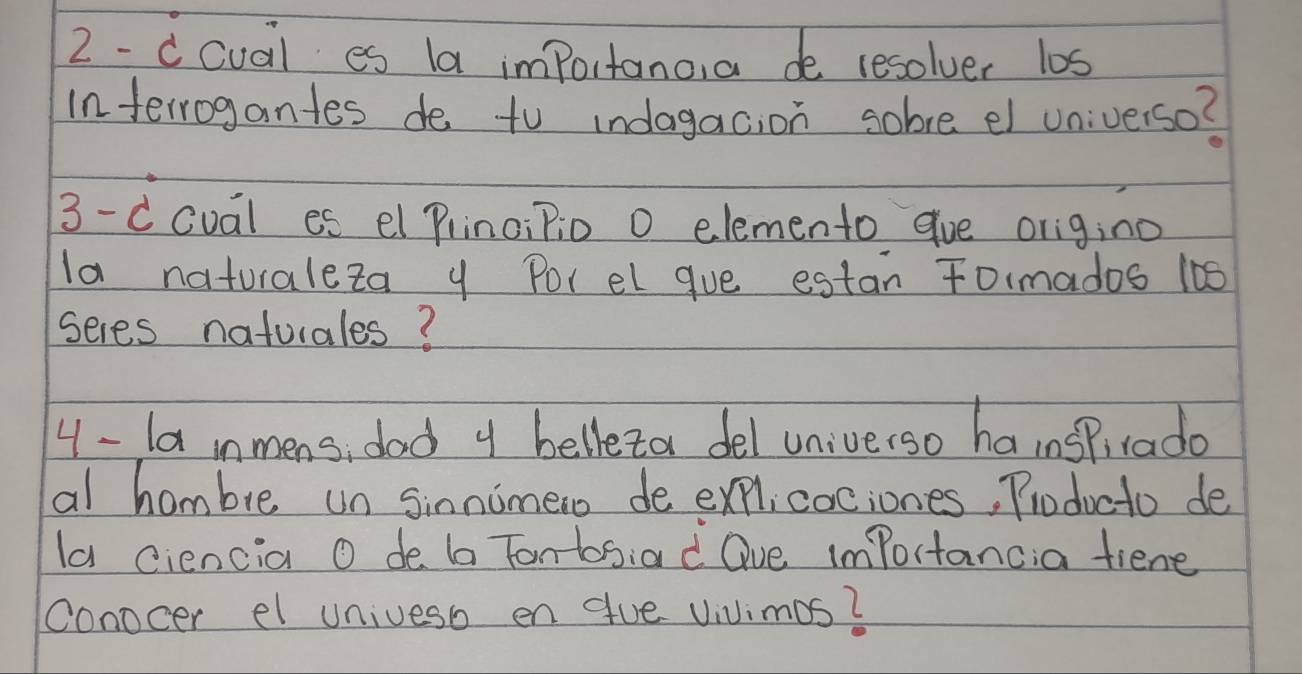 2 - ¿Cuál es la importancia de resolver los
interrogantes de tu indagación sobre el universo?
3 - ¿cuál es el Principio o elemento que originó
la naturaleza y Por el que están Formados los
seres naturales?
4 - la inmensidad y belleza del universo ha inspirado
al hombre un sinnúmero de explicaciones, Producto de
la ciencia o de la Fantasia ¿Que importancia tiene
conocer el univeso en que vivimos?